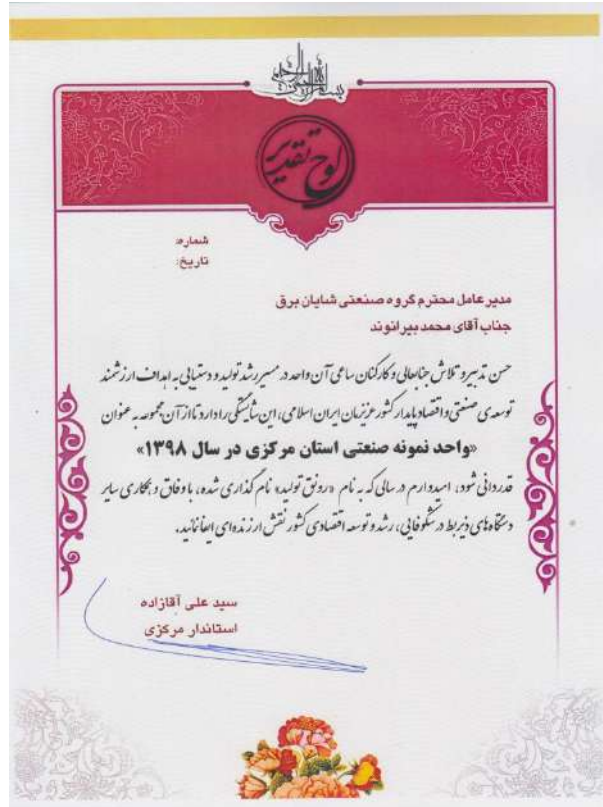 بسم الله الرحمن الرحیم
لوح تقدیر
شماره:
تاریخ:
مدیر عامل محترم گروه صنعتی شایان برق
جناب آقای محمد بیرانوند
حسن تدبیر و تلاش جنابعالی و کارکنان ساعی آن واحد در مسیر رشد تولید و دستیابی به اهداف ارزشمند
توسعه‌ی صنعتی و اقتصاد پایدار کشور عزیزمان ایران اسلامی، این شایستگی را دارد تا از آن مجموعه به عنوان
«واحد نمونه صنعتی استان مرکزی در سال ۱۳۹۸»
قدردانی شود، امیدوارم در سالی که به نام «رونق تولید» نام گذاری شده، با وفاق و همکاری سایر
دستگاه‌های ذیربط در شکوفایی، رشد و توسعه اقتصادی کشور نقش ارزنده‌ای ایفا نمائید.
سید علی آقازاده
استاندار مرکزی